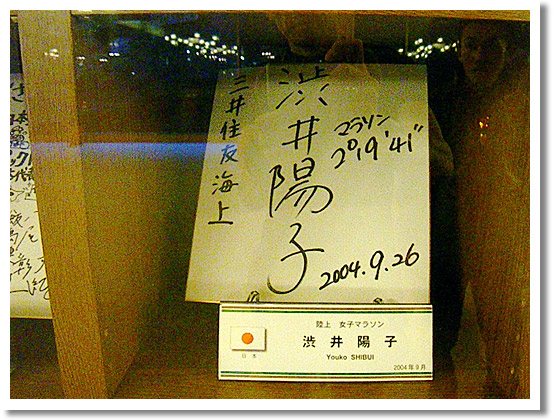 三井住友海上
渋井陽子
マラソン
2°19'41"
2004.9.26
陸上 女子マラソン
渋井陽子
Youko SHIBUI
日本
2004年9月